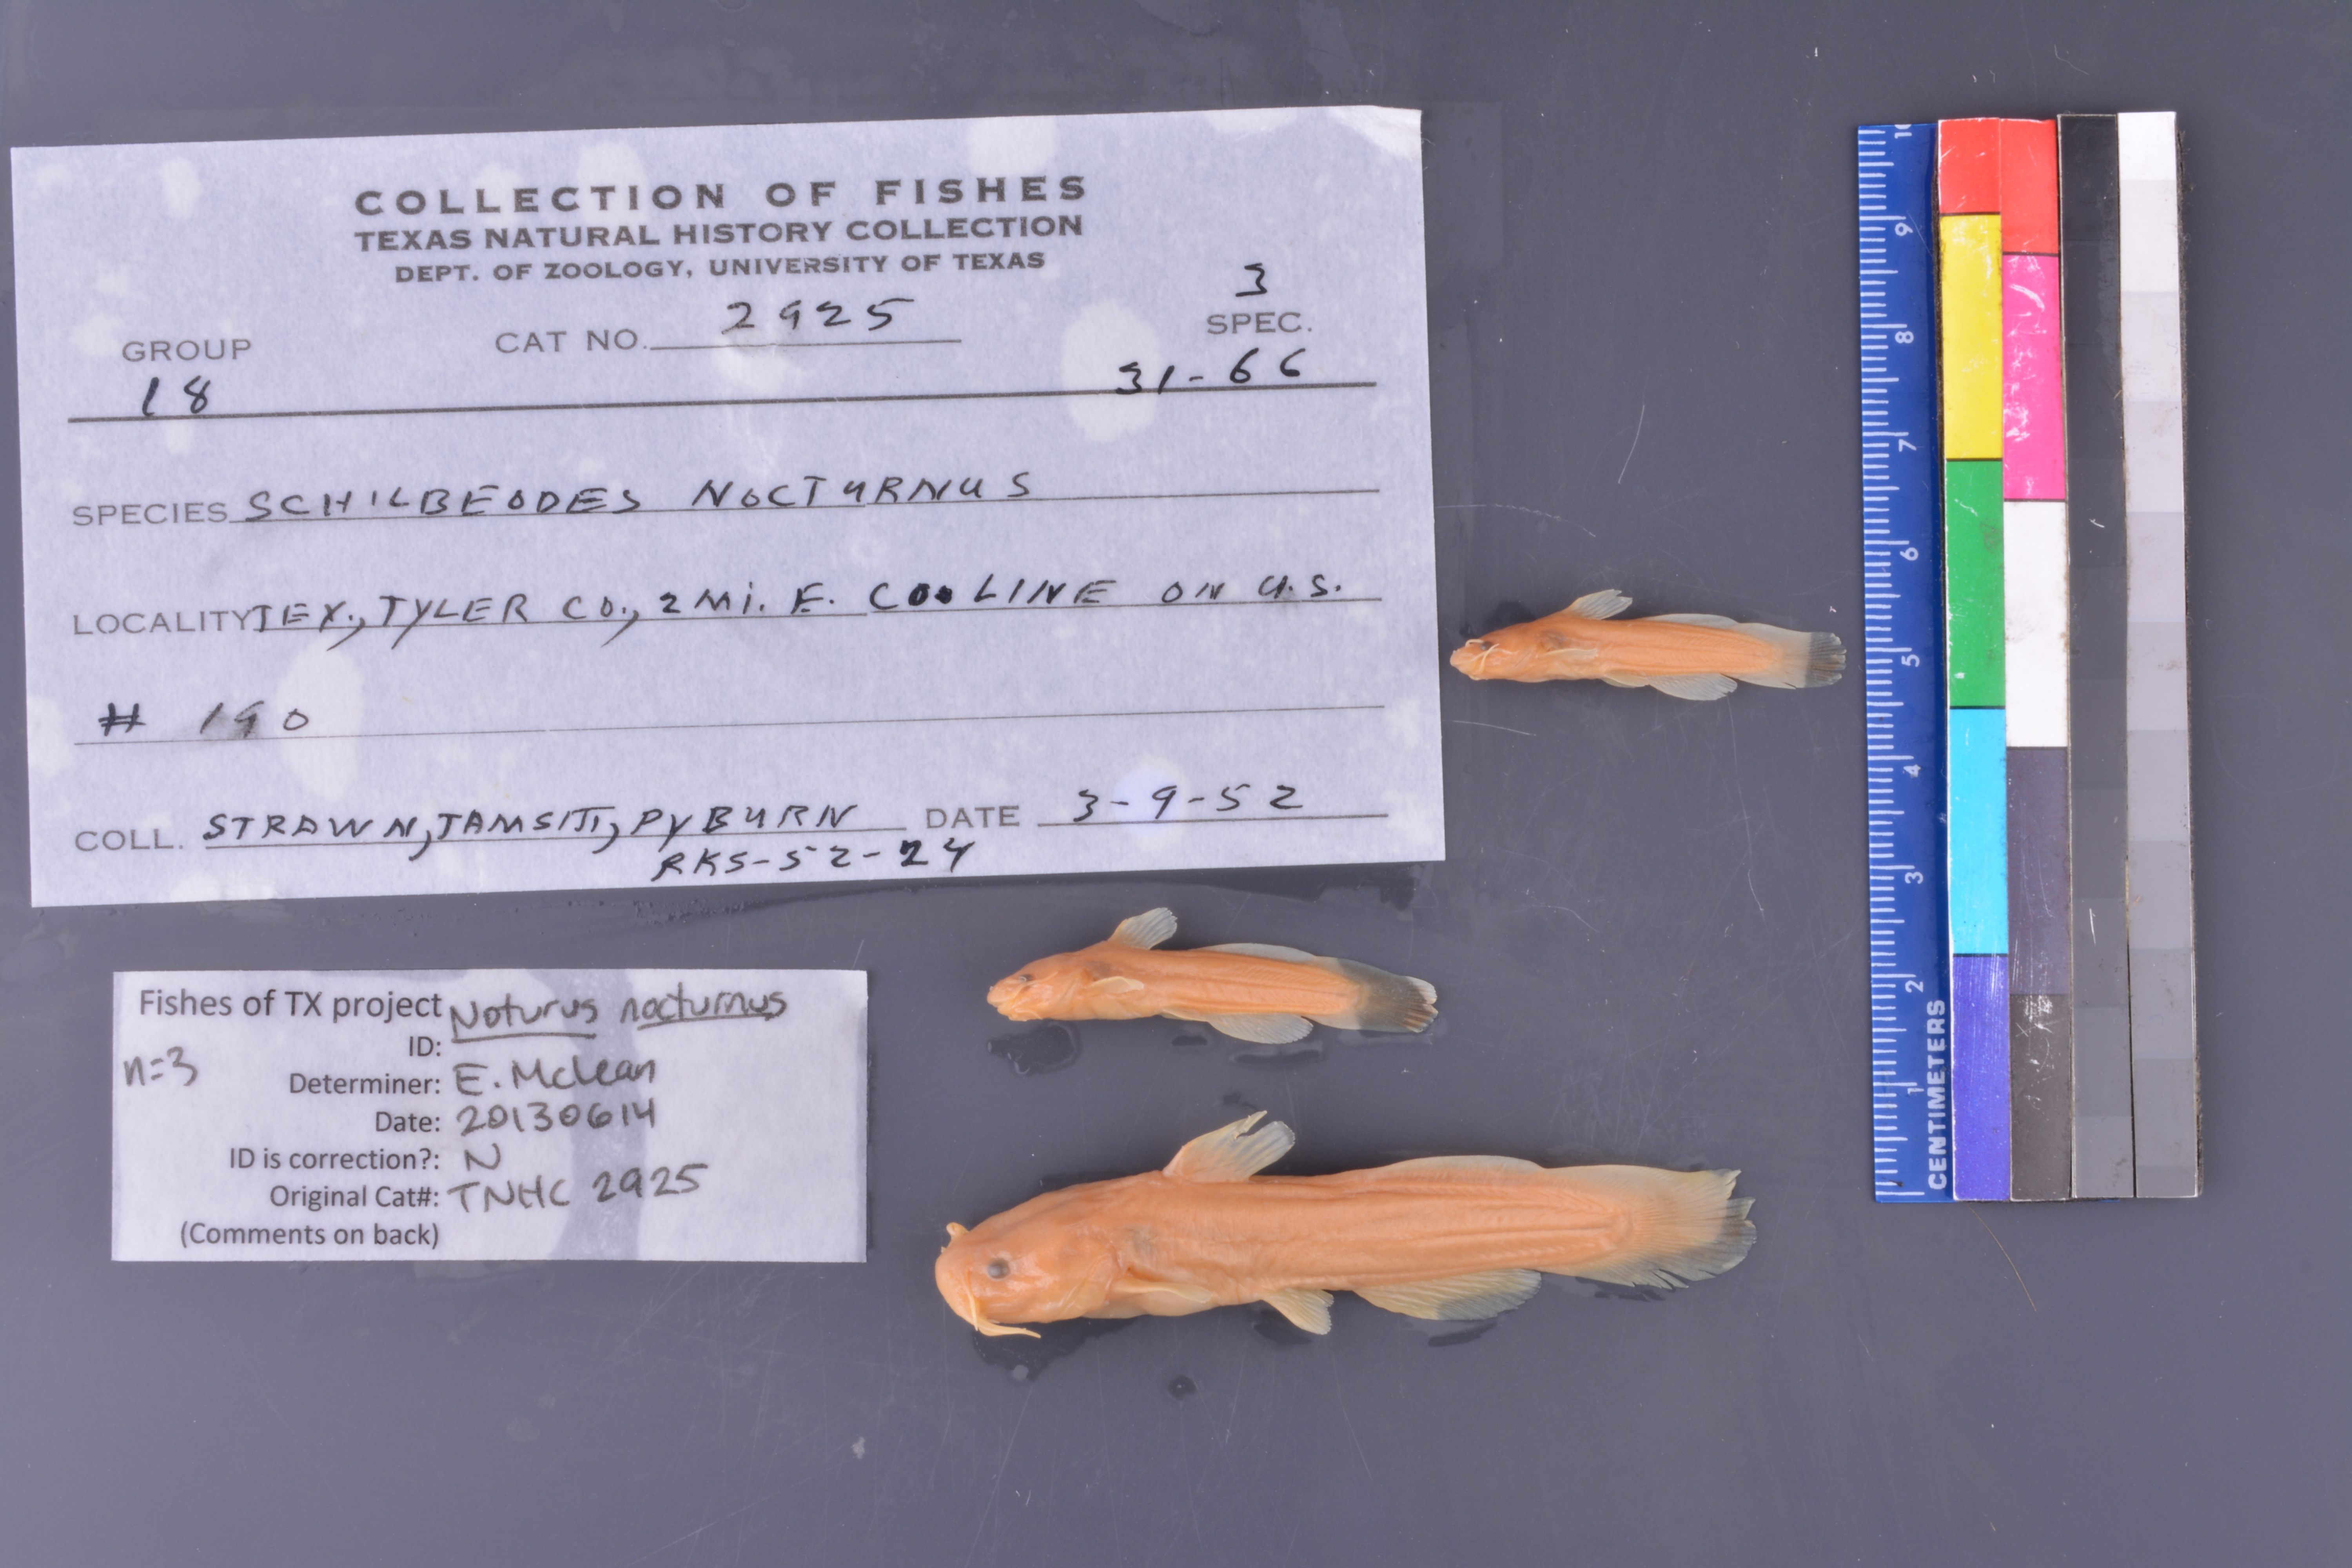 COLLECTION OF FISHES
TEXAS NATURAL HISTORY COLLECTION
DEPT. OF ZOOLOGY, UNIVERSITY OF TEXAS
3
GROUP CAT NO. 2925 SPEC.
18 31-66
SPECIES SCHILBEODES NOCTURNUS
LOCALITY TEX., TYLER CO., 2 Mi. E. CO. LINE ON U.S.
# 190
COLL. STRAWN, JAMSITI, PYBURN DATE 3-9-52
RKS-52-24
Fishes of TX project Noturus nocturnus
ID:
n=3
Determiner: E. McLean
Date: 20130614
ID is correction?: N
Original Cat#: TNHC 2925
(Comments on back)
10
9
8
7
6
5
4
3
2
1
CENTIMETERS